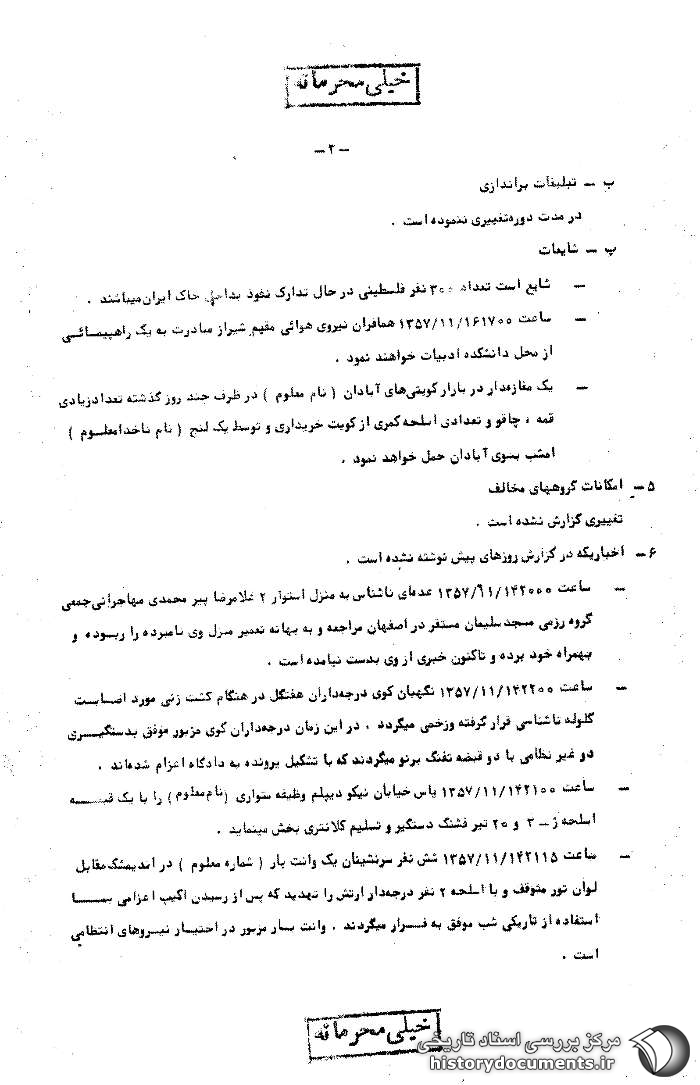 خیلی محرمانه
- ۲ -
ب - تبلیغات براندازی
در مدت دوره تغییری ننموده است .
پ - شایعات
- شایع است تعداد ۳۰۰ نفر فلسطینی در حال تدارک نفوذ بداخل خاک ایران میباشند .
- ساعت ۱۳۵۷/۱۱/۱۶۱۷۰۰ همافران نیروی هوائی مقیم شیراز مبادرت به یک راهپیمائی
از محل دانشکده ادبیات خواهند نمود .
- یک مغازه‌دار در بازار کویتی‌های آبادان ( نام معلوم ) در ظرف چند روز گذشته تعداد زیادی
قمه ، چاقو و تعدادی اسلحه کمری از کویت خریداری و توسط یک لنج ( نام ناخدا معلوم )
امشب بسوی آبادان حمل خواهد نمود .
۵ - امکانات گروههای مخالف
تغییری گزارش نشده است .
۶ - اخباریکه در گزارش روزهای پیش نوشته نشده است .
- ساعت ۱۳۵۷/۱۱/۱۴۲۰۰۰ عده‌ای ناشناس به منزل استوار ۲ غلامرضا پیر محمدی مهاجرانی جمعی
گروه رزمی مسجد سلیمان مستقر در اصفهان مراجعه و به بهانه تعمیر منزل وی نامبرده را ربوده و
بهمراه خود برده و تاکنون خبری از وی بدست نیامده است .
- ساعت ۱۳۵۷/۱۱/۱۴۲۲۰۰ نگهبان کوی درجه‌داران هفتگل در هنگام گشت زنی مورد اصابت
گلوله ناشناسی قرار گرفته وزخمی میگردد . در این زمان درجه‌داران کوی مزبور موفق بدستگیری
دو غیر نظامی با دو قبضه تفنگ برنو میگردند که با تشکیل پرونده به دادگاه اعزام شده‌اند .
- ساعت ۱۳۵۷/۱۱/۱۴۲۱۰۰ پاس خیابان نیکو دیپلم وظیفه سواری (نام معلوم) را با یک قبضه
اسلحه ژ - ۳ و ۲۰ تیر فشنگ دستگیر و تسلیم کلانتری بخش مینماید .
- ساعت ۱۳۵۷/۱۱/۱۴۲۱۱۵ شش نفر سرنشینان یک وانت بار ( شماره معلوم ) در اندیمشک مقابل
لوان تور متوقف و با اسلحه ۲ نفر درجه‌دار ارتش را تهدید که پس از رسیدن اکیپ اعزامی بــا
استفاده از تاریکی شب موفق به فــرار میگردند . وانت بــار مزبور در اختیــار نیــروهای انتظامی
است .
خیلی محرمانه
مرکز بررسی اسناد تاریخی
historydocuments.ir